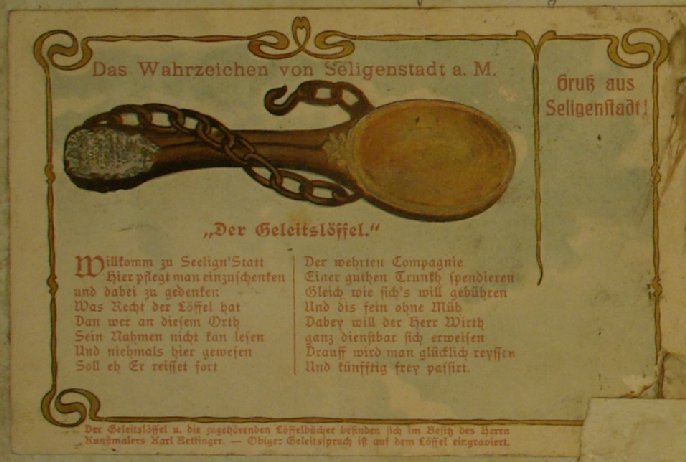 Das Wahrzeichen von Seligenstadt a. M.
Gruß aus
Seligenstadt!
„Der Geleitslöffel.“
Willkomm zu Seelign'Statt
Hier pflegt man einzuschenken
und dabei zu gedenken
Was Recht der Löffel hat
Dan wer an diesem Orth
Sein Nahmen nicht kan lesen
Und niehmals hier gewesen
Soll eh Er reisset fort
Der wehrten Compagnie
Einer guthen Trunkh spendieren
Gleich wie sich's will gebühren
Und dis sein ohne Müh
Dabey will der Herr Wirth
ganz dienstbar sich erweisen
Drauff wird man glücklich reyssen
Und künfftig frey passirt.
Der Geleitslöffel u. die zugehörenden Löffelbücher befinden sich im Besitz des Herrn
Kunstmalers Karl Kettinger. — Obiger Geleitsspruch ist auf dem Löffel eingraviert.